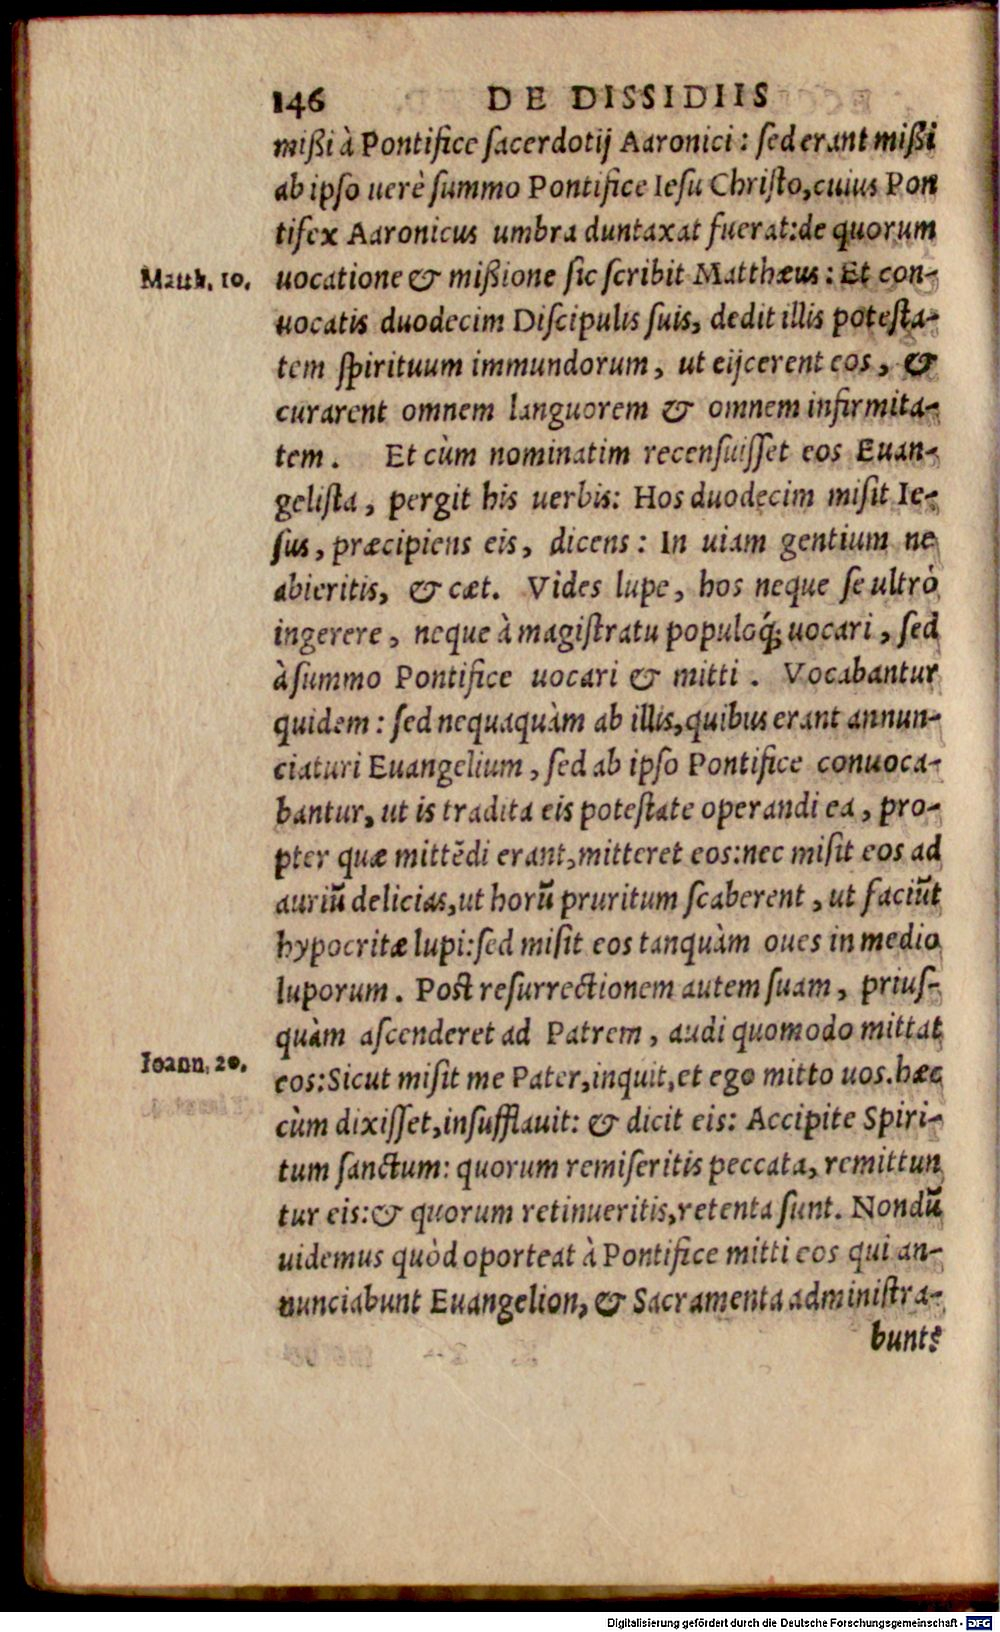 146 DE DISSIDIIS
mißi à Pontifice ſacerdotij Aaronici: ſed erant mißi
ab ipſo uerè ſummo Pontifice Ieſu Chriſto, cuius Pon
tifex Aaronicus umbra duntaxat fuerat: de quorum
Matth. 10. uocatione & mißione ſic ſcribit Matthæus: Et con-
uocatis duodecim Diſcipulis ſuis, dedit illis poteſta-
tem ſpirituum immundorum, ut eijcerent eos, &
curarent omnem languorem & omnem infirmita-
tem. Et cùm nominatim recenſuiſſet eos Euan-
geliſta, pergit his uerbis: Hos duodecim miſit Ie-
ſus, præcipiens eis, dicens: In uiam gentium ne
abieritis, & cæt. Vides lupe, hos neque ſe ultrò
ingerere, neque à magiſtratu populoq́; uocari, ſed
à ſummo Pontifice uocari & mitti. Vocabantur
quidem: ſed nequaquàm ab illis, quibus erant annun-
ciaturi Euangelium, ſed ab ipſo Pontifice conuoca-
bantur, ut is tradita eis poteſtate operandi ea, pro-
pter quæ mittẽdi erant, mitteret eos: nec miſit eos ad
auriũ delicias, ut horũ pruritum ſcaberent, ut faciũt
hypocritæ lupi: ſed miſit eos tanquàm oues in medio
luporum. Poſt reſurrectionem autem ſuam, priuſ-
quàm aſcenderet ad Patrem, audi quomodo mittat
Ioann. 20. eos: Sicut miſit me Pater, inquit, et ego mitto uos. hæc
cùm dixiſſet, inſufflauit: & dicit eis: Accipite Spiri-
tum ſanctum: quorum remiſeritis peccata, remittun
tur eis: & quorum retinueritis, retenta ſunt. Nondũ
uidemus quòd oporteat à Pontifice mitti eos qui an-
nunciabunt Euangelion, & Sacramenta adminiſtra-
bunt?
Digitalisierung gefördert durch die Deutsche Forschungsgemeinschaft - DFG